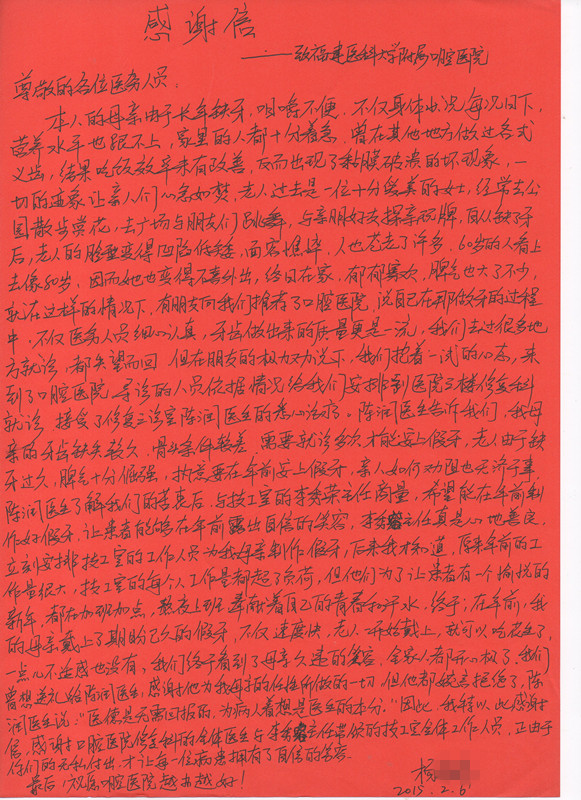 感谢信
——致福建医科大学附属口腔医院
尊敬的各位医务人员：
本人的母亲由于长年缺牙，咀嚼不便，不仅身体状况每况日下，
营养水平也跟不上，家里的人都十分着急，曾在其他地方做过各式
义齿，结果吃饭效率未有改善，反而出现了黏膜破溃的坏现象，一
切的迹象让亲人们心急如焚。老人过去是一位十分爱美的女士，经常去公
园散步赏花，去广场与朋友们跳舞，与亲朋好友探亲打牌，自从缺了牙
后，老人的脸型变得凹陷低矮，面容憔悴，人也苍老了许多，60岁的人看上
去像80岁，因而她也变得不喜外出，终日在家，郁郁寡欢，脾气也大了不少，
就在这样的情况下，有朋友向我们推荐了口腔医院，说自己在那做牙的过程
中，不仅医务人员细心认真，牙齿做出来的质量更是一流，我们去过很多地
方就诊，都失望而回，但在朋友的极力劝说下，我们抱着一试的心态，来
到了口腔医院，导诊的人员依据情况给我们安排到医院三楼修复科
就诊，接受了修复三诊室陈润医生的悉心治疗。陈润医生告诉我们，我母
亲的牙齿缺失较久，骨头条件较差，需要就诊多次才能安上假牙，老人由于缺
牙过久，脾气十分倔强，执意要在年前安上假牙，亲人如何劝阻也无济于事，
陈润医生了解我们的苦衷后，与技工室的李秀荣主任商量，希望能在年前制
作好假牙，让患者能够在年前露出自信的笑容，李秀容主任真是心地善良，
立刻安排技工室的工作人员为我母亲制作假牙，后来我才知道，原来年前的工
作量很大，技工室的每个人工作量都超了负荷，但他们为了让患者有一个愉悦的
新年，都在加班加点，熬夜上班，奉献着自己的青春和汗水，终于；在年前，我
的母亲戴上了期盼已久的假牙，不仅速度快，老人一开始戴上，就可以吃花生了，
一点儿不适感也没有，我们终于看到了母亲久违的笑容，全家人都开心极了，我们
曾想送礼给陈润医生，感谢他为我母亲的任性所做的一切，但他都婉言拒绝了，陈
润医生说：“医德是无需回报的，为病人着想是医生的本分。”因此，我特以此感谢
信，感谢口腔医院修复科的全体医生与李秀容主任带领的技工室全体工作人员，正由于
你们的无私付出，才让每一位病患拥有了自信的笑容。
最后，祝愿口腔医院越办越好！
杨
2015.2.6